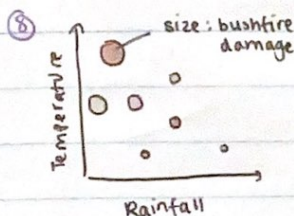 8
size : bushfire
damage
Temperature
Rainfall